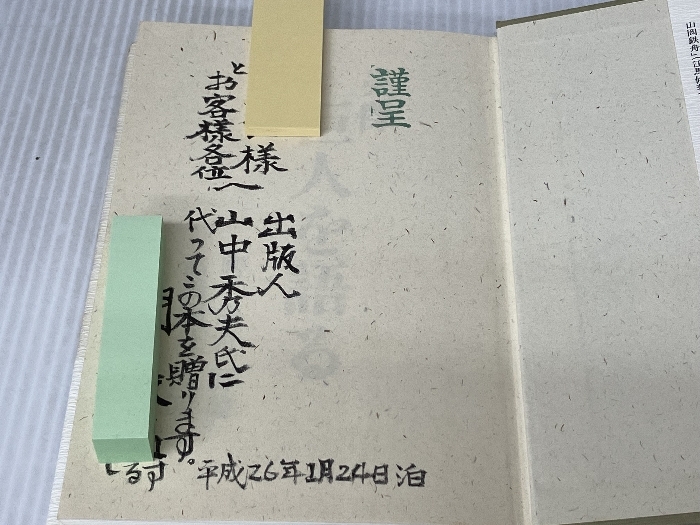 山岡鉄舟
謹呈
様
とお客様各位へ
出版人
山中秀夫氏に
代ってこの本を贈ります。
しるす
平成26年1月24日泊